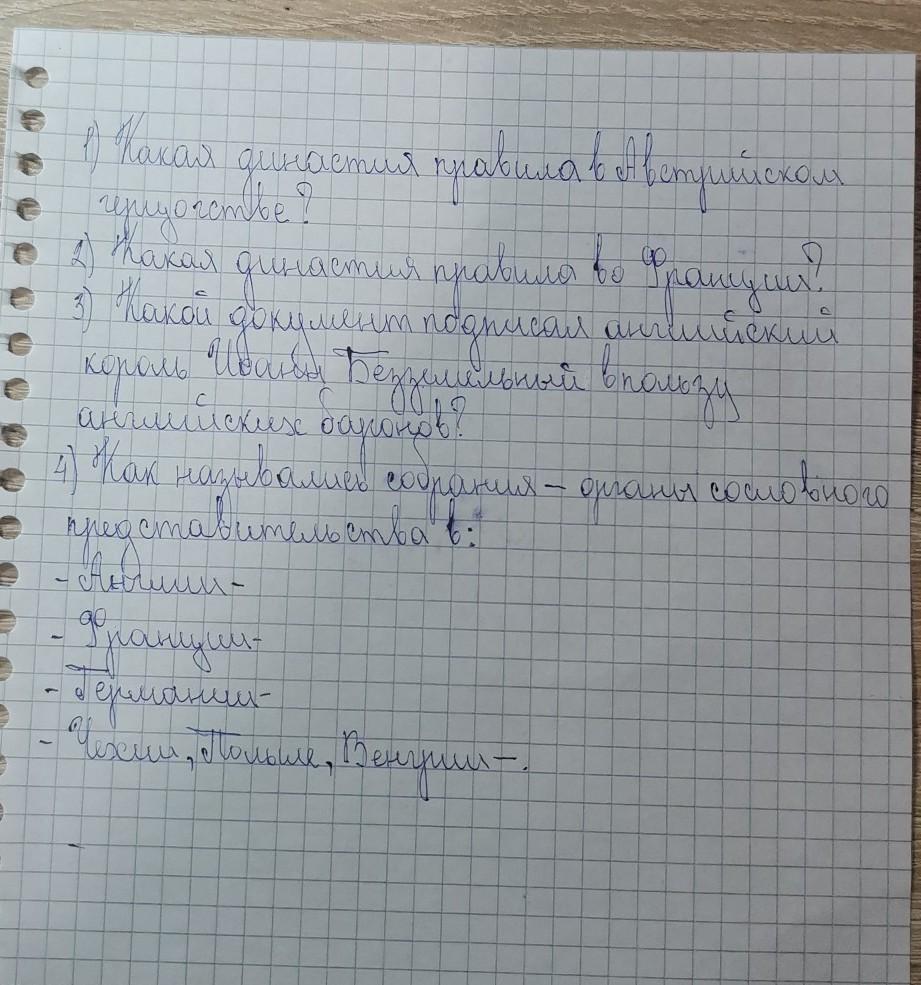 1) Какая династия правила в Австрийском
герцогстве?
2) Какая династия правила во Франции?
3) Какой документ подписал английский
король Иоанн Безземельный в пользу
английских баронов?
4) Как назывались собрания – органы сословного
представительства в:
- Англии-
- Франции-
- Германии-
- Чехии, Польше, Венгрии-.